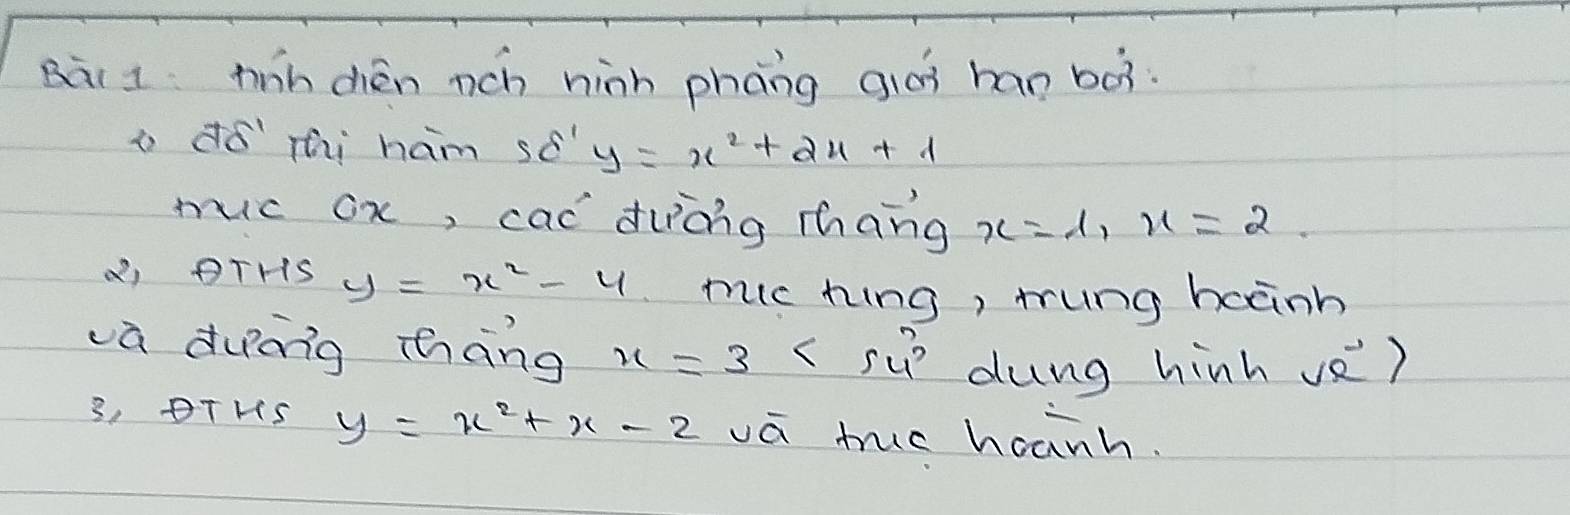 Bài 1: tính diện tích hình phẳng giới hạn bởi:
1, đồ thị hàm số y = x² + 2x + 1
trục Ox, các đường thẳng x = 1, x = 2.
2, ĐTHS y = x² - 4. trục tung, trung hoành
và đường thẳng x = 3 ( sử dụng hình vẽ )
3, ĐTHS y = x² + x - 2 và trục hoành.